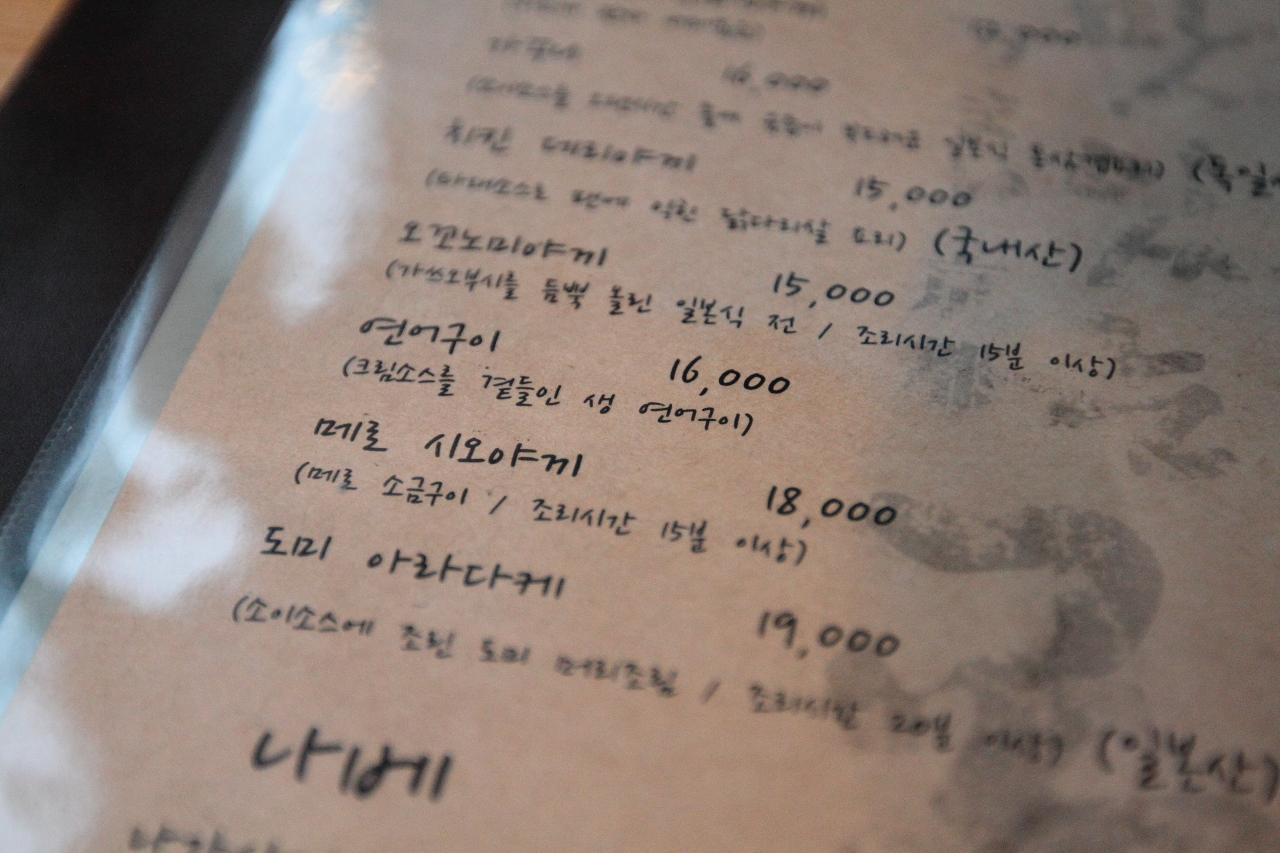 16,000
치킨 데리야끼 15,000
(타래소스로 팬에 익힌 닭다리살 요리) (국내산)
오꼬노미야끼 15,000
(가쓰오부시를 듬뿍 올린 일본식 전 / 조리시간 15분 이상)
연어구이 16,000
(크림소스를 곁들인 생 연어구이)
메로 시오야끼 18,000
(메로 소금구이 / 조리시간 15분 이상)
도미 아라다케 19,000
(소이소스에 조린 도미 머리조림 / 조리시간 20분 이상) (일본산)
나베